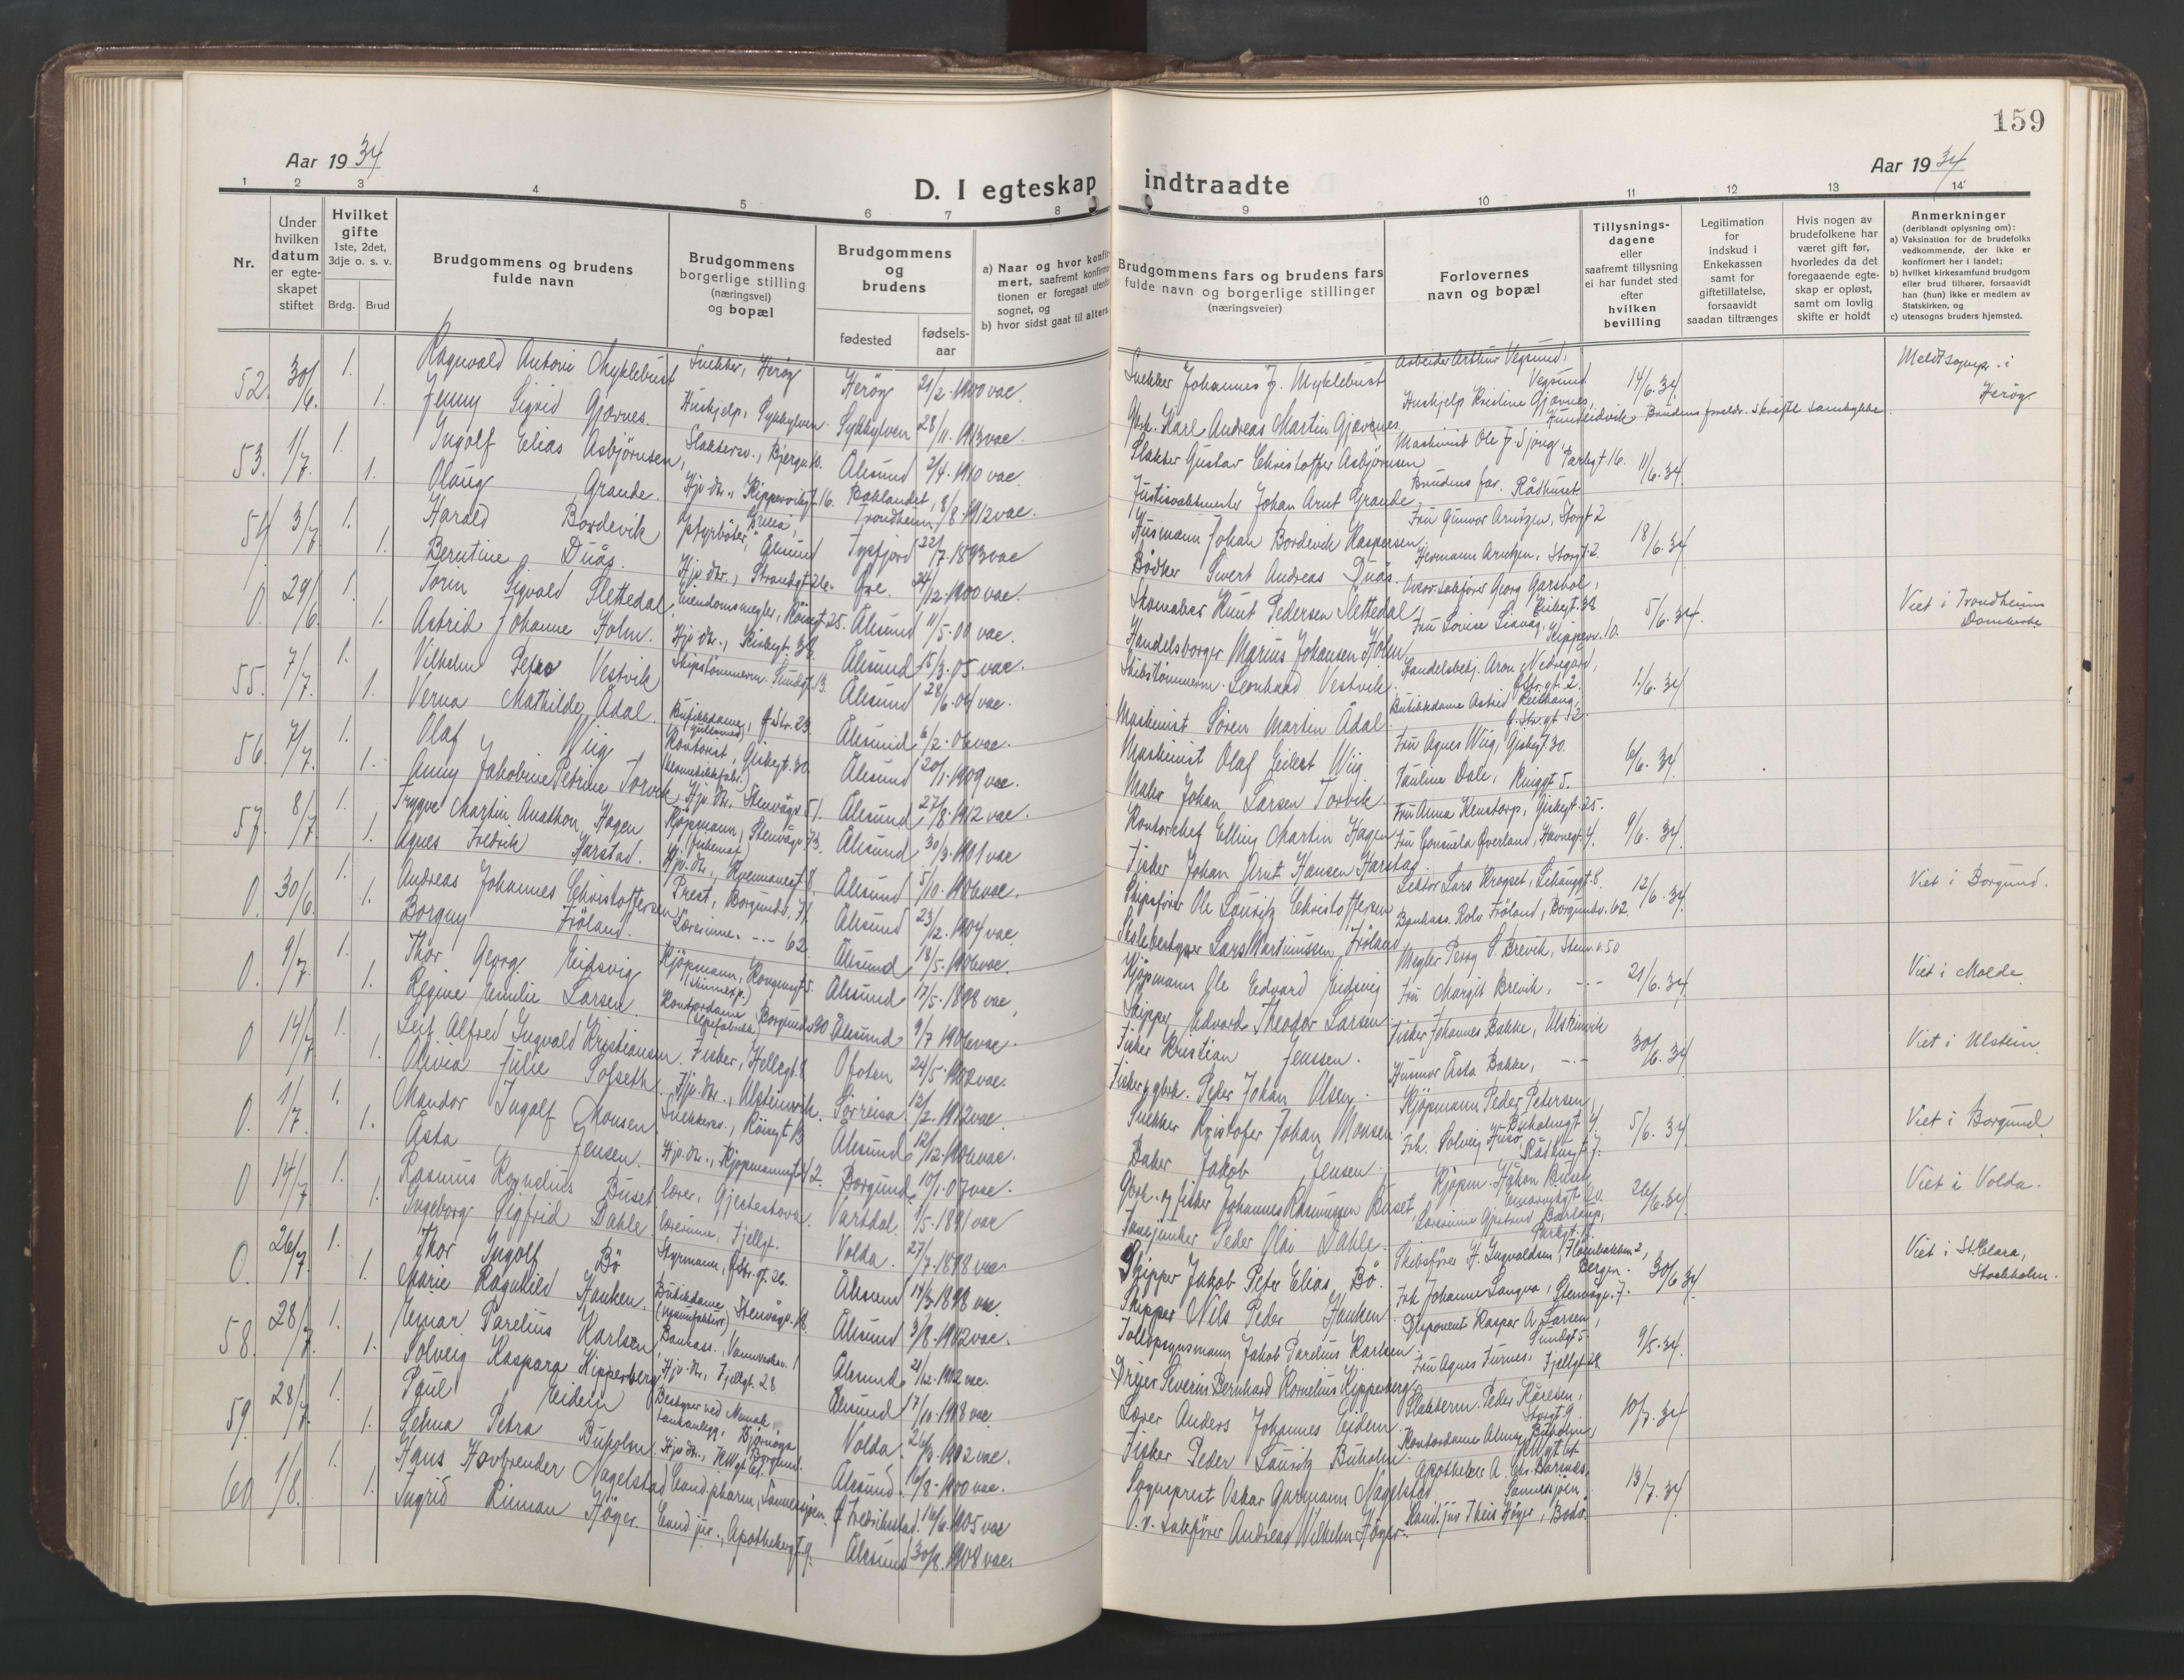 159
Aar 1934
Aar 1934
D. I egteskap indtraadte
1 2 3 4 5 6 7 8 9 10 11 12 13 14
Nr.
Under hvilken datum er egteskapet stiftet
Hvilket gifte
1ste, 2det, 3dje o. s. v.
Brdg. Brud
Brudgommens og brudens fulde navn
Brudgommens borgerlige stilling (næringsvei) og bopæl
Brudgommens og brudens
fødested
fødsels-aar
a) Naar og hvor konfir-
mert, saafremt konfirma-
tionen er foregaat utenfor
sognet, og
b) hvor sidst gaat til alters
Brudgommens fars og brudens fars fulde navn og borgerlige stillinger (næringsveier)
Forlovernes navn og bopæl
Tillysnings-dagene eller saafremt tillysning ei har fundet sted efter hvilken bevilling
Legitimation for indskud i Enkekassen samt for giftetillatelse, forsaavidt saadan tiltrænges
Hvis nogen av brudefolkene har været gift før, hvorledes da det foregaaende egteskap er opløst, samt om lovlig skifte er holdt
Anmerkninger
(deriblandt oplysning om):
a) Vaksination for de brudefolks vedkommende, der ikke er konfirmert her i landet;
b) hvilket kirkesamfund brudgom eller brud tilhører, forsaavidt han (hun) ikke er medlem av Statskirken, og
c) utensogns bruders hjemsted.
52. 30/6. 1. Ragnvald Antoni Myklebust Snekker, Herøy Herøy 21/2. 1900 vac. Snekker Johannes J. Myklebust Arbeider Arthur Vegsund, Vegsund 14/6. 34. Meldt sognepr. i Herøy
1. Jenny Sigrid Gjævnes. Hushjelp, Sykkylven. Sykkylven 28/11. 1913 vac. Gbrk. Karl Andreas Martin Gjævnes Hushjelp Kristine Gjævnes, Hundeidvik Brudens foreldr. skriftl. samtykke.
53. 1/7. 1. Ingolf Elias Asbjørnsen, Slaktersv., Ålesund 2/4. 1910 vac. Slakter Gustav Christoffer Asbjørnsen Maskinist Ole J. Sjong, Parkgt 16. 11/6. 34.
1. Olaug Grande. Hjv. dtr., Skippervikgt. 16. Baklandet, Trondheim, 8/8. 1912 vac. Justisvaktmester Johan Arnt Grande Brudens far. Rådhuset.
54 3/7 1. Harald Bordevik Fyrbøter, Ålesund Tysfjord 22/7. 1893 vac Husmann Johan Bordevik Kaspersen. Fru Gunvor Arntzen, Storgt 2 18/6. 34
1. Berntine Duås. Hjv. dtr., Strandgt 26. 24/12. 1900 vac. Bødker Sivert Andreas Duås. Hermann Arntzen, Storgt. 2.
0. 29/6 1. Torin Sigvald Slettedal, Eiendomsmegler, Røisegt 25. Ålesund 11/5. 00 vac. Skomaker Knut Pedersen Slettedal Overr.sakfører Georg Garshol, Kirkegt. 38 5/6. 34. Viet i Trondheim Domkirke
1. Astrid Johanne Holm. Hjv. dtr., Kirkegt. 38. Ålesund 15/3. 05 vac. Handelsborger Marius Johansen Holm Fru Lovise Sisvåg, Kipperv. 10.
55. 7/7. 1. Vilhelm Petro Vestvik Skipstømmerm. Sundgt. 13. Ålesund 28/6. 04 vac. Skibstømmerm. Leonhard Vestvik. Handelsbetj. Aron Nedregård, Ø.Str.gt. 2. 1/6. 34
1. Verna Mathilde Ådal. Butikkdame, Ø. Str. 23. Ålesund 6/2. 06 vac. Maskinist Søren Martin Ådal. Butikkdame Astrid Reithaug, Ø. Str.gt. 12.
56. 7/7. 1. Olaf Wiig Kontorist, Giskegt. 30. Ålesund 20/1. 1909 vac. Maskinist Olaf Eilert Wiig Fru Agnes Wiig, Giskegt. 30. 6/6. 34
1. Anny Jakobine Petrine Torvik Hjv. dtr. Stenvågv 51. Ålesund 27/8. 1912 vac. Maler Johan Larsen Torvik. Pauline Dale, Ringgt 5.
57. 8/7. 1. Trygve Martin Anathon Hagen Kjøpmann, Stenvågv 73. Ålesund 30/3. 1901 vac Kontorchef Elling Martin Hagen Fru Anna Kenstorp, Giskegt. 25. 9/6. 34
1. Agnes Fredrik Harstad. Hjv. dtr., Kvennanest 8. Ålesund 5/10. 1906 vac. Fisker Johan Arnt Hansen Harstad Fru Consuela Øverland, Havnegt. 4.
0. 30/6. 1. Andreas Johannes Christoffersen Prest, Borgundv. 71. Ålesund 23/12. 1904 vac. Skipsfører Ole Lauritz Christoffersen Lektor Lars Kropset, Lihauggt. 8. 12/6. 34. Viet i Borgund.
1. Borgny Frøland. Lærerinne. -- 62 Ålesund 18/5. 1906 vac. Skolebestyrer Lars Martinussen Frøland Bankass. Rolv Frøland, Borgundv. 62.
0 9/7. 1. Thor Georg Eidsvig Kjøpmann, Kongensgt 5. Ålesund 17/5. 1898 vac, Kjøpmann Ole Edvard Eidsvig Megler Perry S. Brevik, Stenv.v. 50 21/6. 34. Viet i Molde
1. Regine Emilie Larsen. Kontordame, Borgundv 90 Ålesund 9/7 1906 vac. Skipper Edvard Theodor Larsen. Fru Margit Brevik, --
0 14/7 1. Leif Alfred Ingvald Kristiansen. Fisker, Hellegt. 8 Ofoten 24/5. 1902 vac. Fisker Kristian Jenssen. Fisker Johannes Bakke, Ulsteinvik 30/6. 34 Viet i Ulstein.
1. Olivia Julie Solseth. Hjv. dtr., Ulsteinvik. Sørreisa. 12/2. 1912 vac. Fisker og gbrk. Peder Johan Olsen. Husmor Åsta Bakke, --
0. 1/7. 1. Mandor Ingolf Monsen Snekkersv., Røisegt 13 Ålesund 12/12. 1906 vac. Snekker Kristofer Johan Monsen Kjøpmann Peder Petersen, Buholmgt. 4. 5/6. 34. Viet i Borgund
1. Åsta Jensen. Hjv. dtr., Kjøpmannsgt 42. Borgund 10/1. 07 vac. Baker Jakob Jensen. Frk. Solveig Husø, Rådhusgt 7.
0 14/7 1. Rasmus Kornelius Buset lærer, Gjectestova. Vartdal. 1/5. 1891 vac Gbrk. og fisker Johannes Rasmussen Buset, Kjøpm. Håkon Buset 26/6. 34. Viet i Volda.
1. Ingeborg Sigfrid Dahle lærerinne, Fjellgt. Volda. 27/7. 1898 vac. Peder Olai Dahle. Lærerinne Parkgt. 8.
0. 26/7. 1. Thor Ingolf Bø Styrmann, Ø.Str.gt. 26. Ålesund 14/3. 1898 vac. Skipper Jakob Peter Elias Bø. Skibsfører H. Ingvaldsen, Bergen. 30/6 34 Viet i St Clara, Stockholm.
1. Marie Ragnhild Hanken. Butikdame (manufaktur) Stenvågv. 18. Ålesund 3/8. 1902 vac. Skipper Nils Peder Hanken. Frk Johanne Langva, Stenvågv. 7.
58. 28/7. 1. Einar Parelius Karlsen, Bankass., Ålesund 21/12. 1902 vac. Tolloppsynsmann Jakob Parelius Karlsen. Disponent Kaspar A. Larsen, Sundgt 5. 9/5. 34.
1. Solveig Kaspara Kipperberg Hjv. dtr. Fjellgt. 28. Ålesund 7/10. 1908 vac. Dreier Severin Bernhard Kornelius Kipperberg. Fru Agnes Furnes, Fjellgt 28
59. 28/7. 1. Paul Eidem Bestyrer ved Norsk tankanlegg, Bjørnøya Borgund. Volda. 26/3. 1902 vac. Lærer Anders Johannes Eidem. Slakterm. Peder Karlsen, Storgt 9. 10/7. 34
1. Selma Petra Buholm. Hjv. dtr., KWgt 61. Ålesund. 16/8. 1900 vac. Fisker Peder Lauritz Buholm. Kontordame Almar Buholm, KWgt 61
60 1/8. 1. Hans Hovbrender Nagelstad Cand. pharm., Sannesjøen. Fredrikstad. 16/6. 1905 vac Sogneprest Oskar Garmann Nagelstad Apotheker A. Chr. Barnas, Sannesjøen 13/7. 34
1. Ingrid Rinnan Høyer. Cand. jur., Apothekergt 9. Ålesund 30/8. 1908 vac. O.r. sakfører Andreas Wilhelm Høyer. Kand. jur. Theis Høyer, Bodø